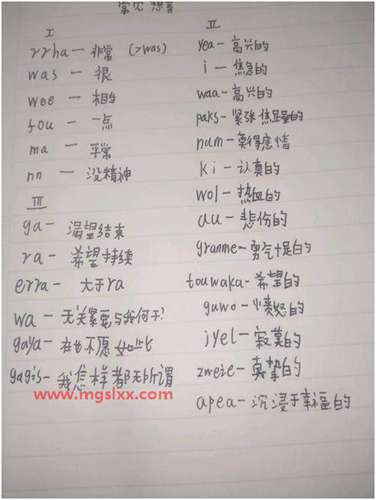 常见想音
I
rrha — 非常 (>was)
was — 很
wee — 相当
fou — 一点
ma — 平常
nn — 没精神
III
ga — 渴望结束
ra — 希望持续
erra — 大于ra
wa — 无关紧要与我何干?
gaya — 在也不愿如此
gagis — 我怎样都无所谓
www.mgslxx.com
II
yea — 高兴的
i — 焦急的
waa — 高兴的
paks — 紧张焦虑的
num — 莫得感情
ki — 认真的
wol — 热血的
au — 悲伤的
granme — 勇气十足的
touwaka — 希望的
guwo — 愤怒的
jyel — 寂寞的
zweie — 真挚的
apea — 沉浸于幸福的